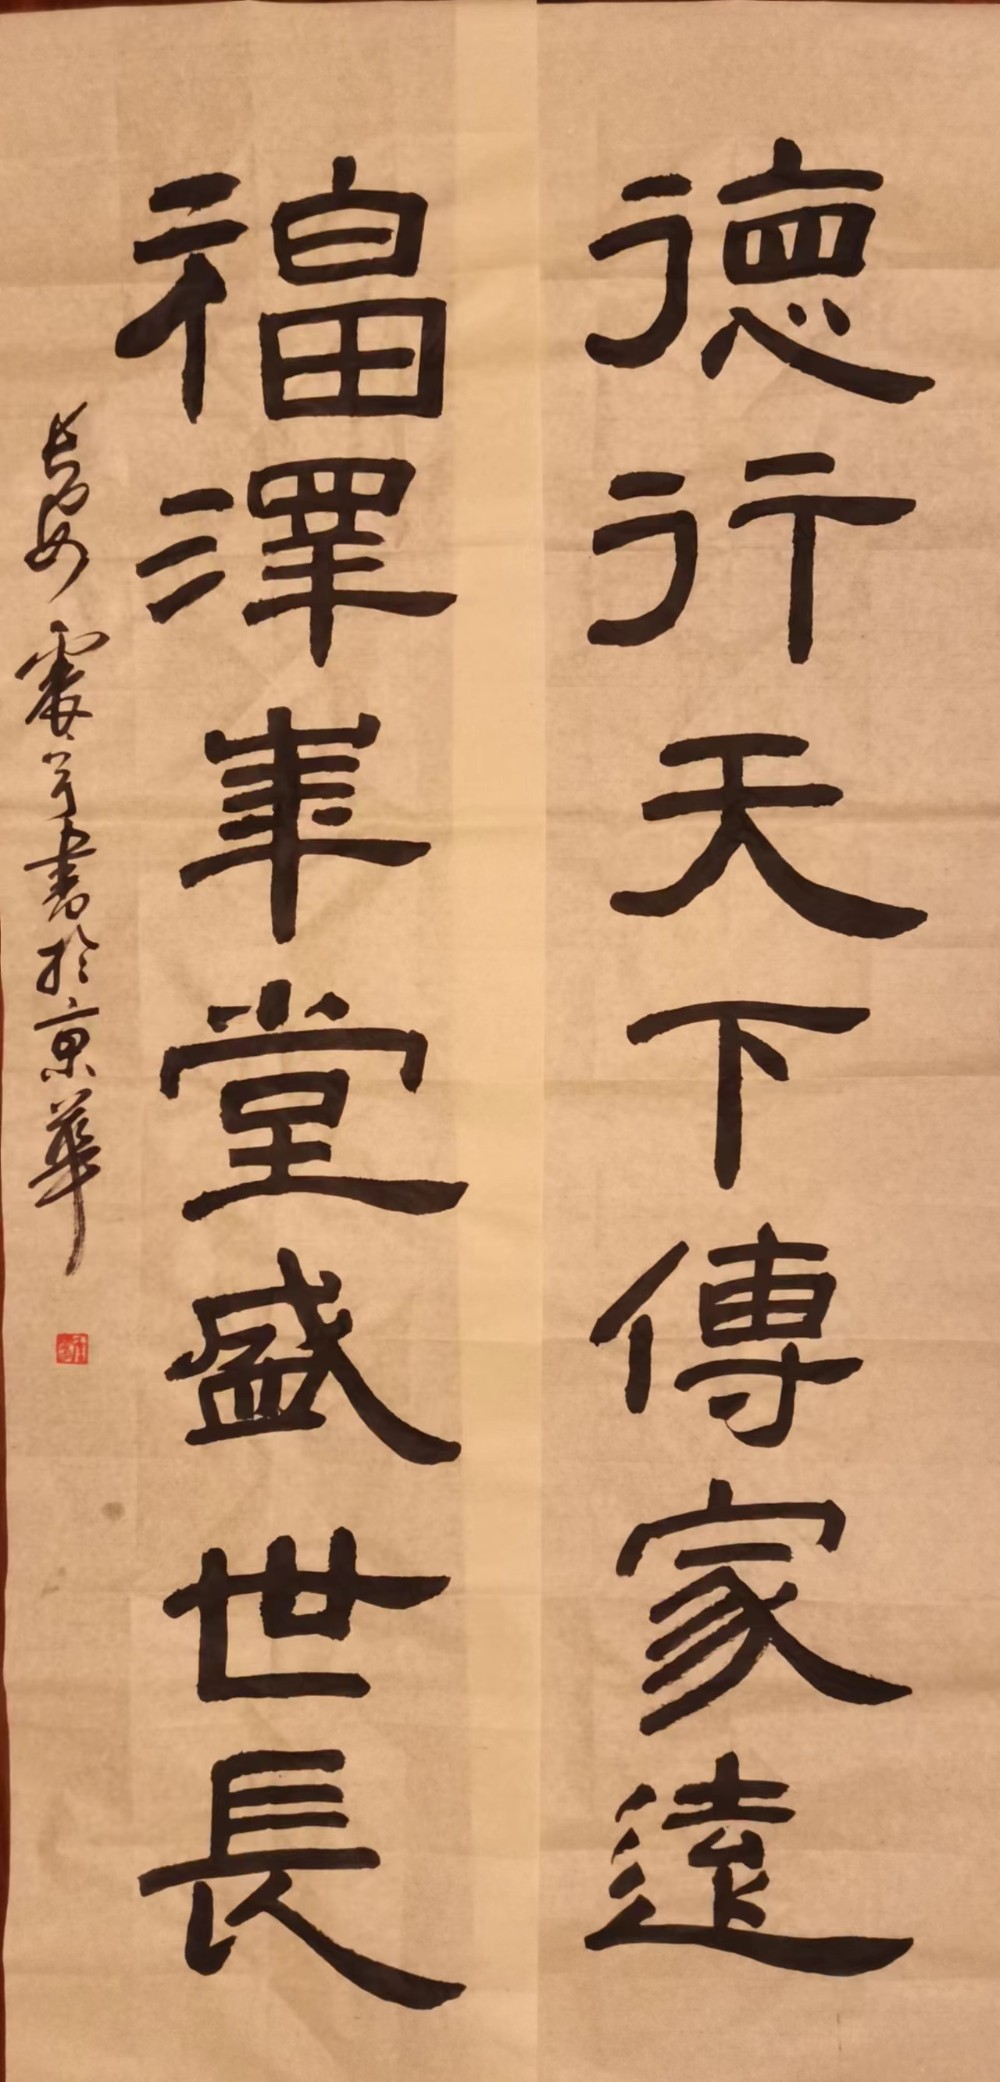 德行天下傳家遠
福澤華堂盛世長
長安 書於京華